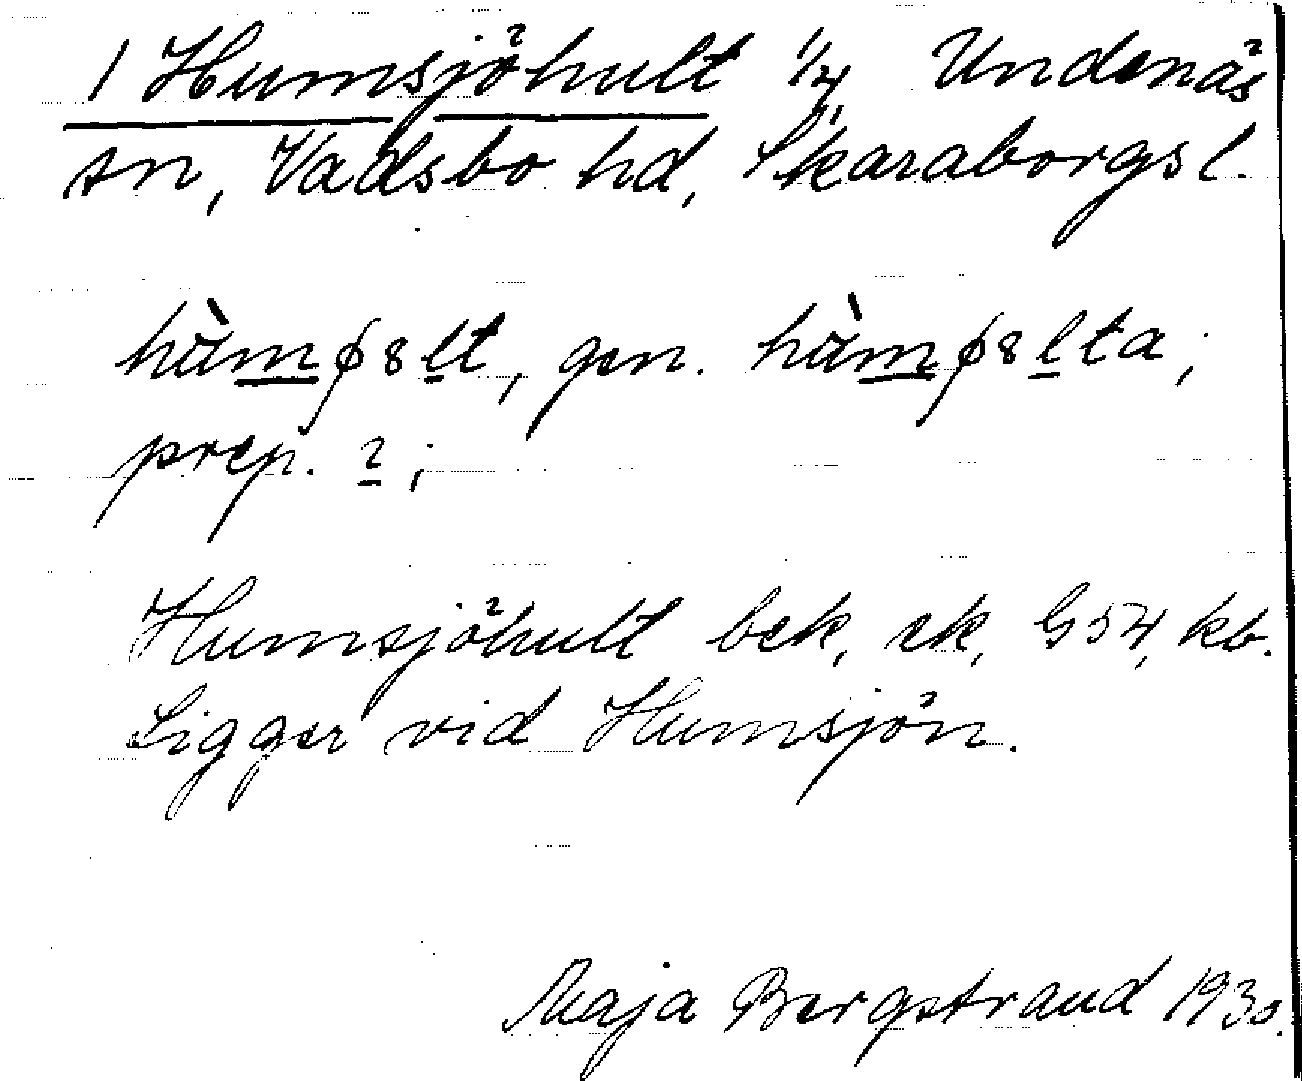 1 Humsjöhult 1/4 Undenäs
sn, Vadsbo hd, Skaraborgs l.
hùmfȣlt, gen. hùmfȣlta;
prep. 2;
Humsjöhult bek, ek, G54, kb.
Ligger vid Humsjön.
Maja Bergstrand 1930.